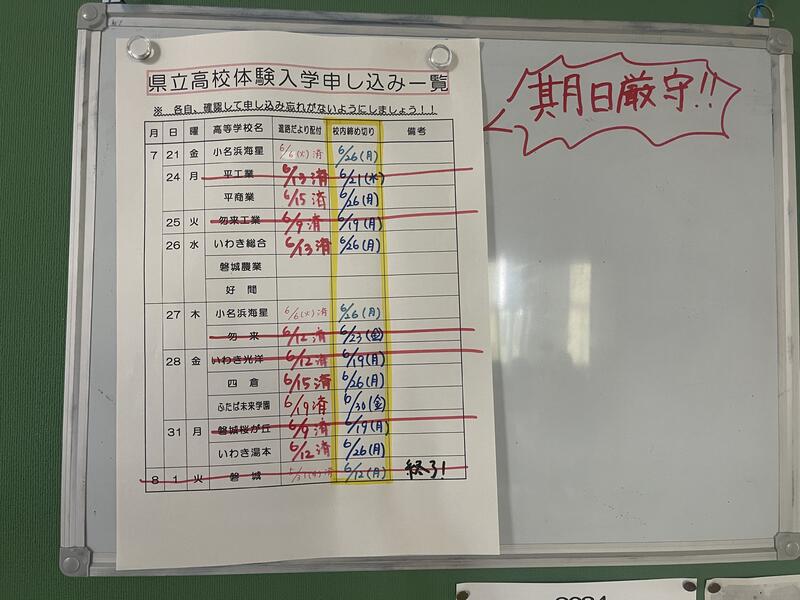 期日厳守!!
県立高校体験入学申し込み一覧
※ 各自、確認して申し込み忘れがないようにしましょう！！
月 日 曜 高等学校名 進路だより配付 校内締め切り 備考
7 21 金 小名浜海星 6/6(火)済 6/26(月)
24 月 平工業 6/13済 6/21(水)
平商業 6/15済 6/26(月)
25 火 勿来工業 6/9済 6/19(月)
26 水 いわき総合 6/13済 6/26(月)
磐城農業
好間
27 木 小名浜海星 6/6(火)済 6/26(月)
勿来 6/12済 6/23(金)
28 金 いわき光洋 6/12済 6/19(月)
四倉 6/15済 6/26(月)
ふたば未来学園 6/19済 6/30(金)
31 月 磐城桜が丘 6/9済 6/19(月)
いわき湯本 6/12済 6/26(月)
8 1 火 磐城 5/31(水)済 6/12(月) 終了!